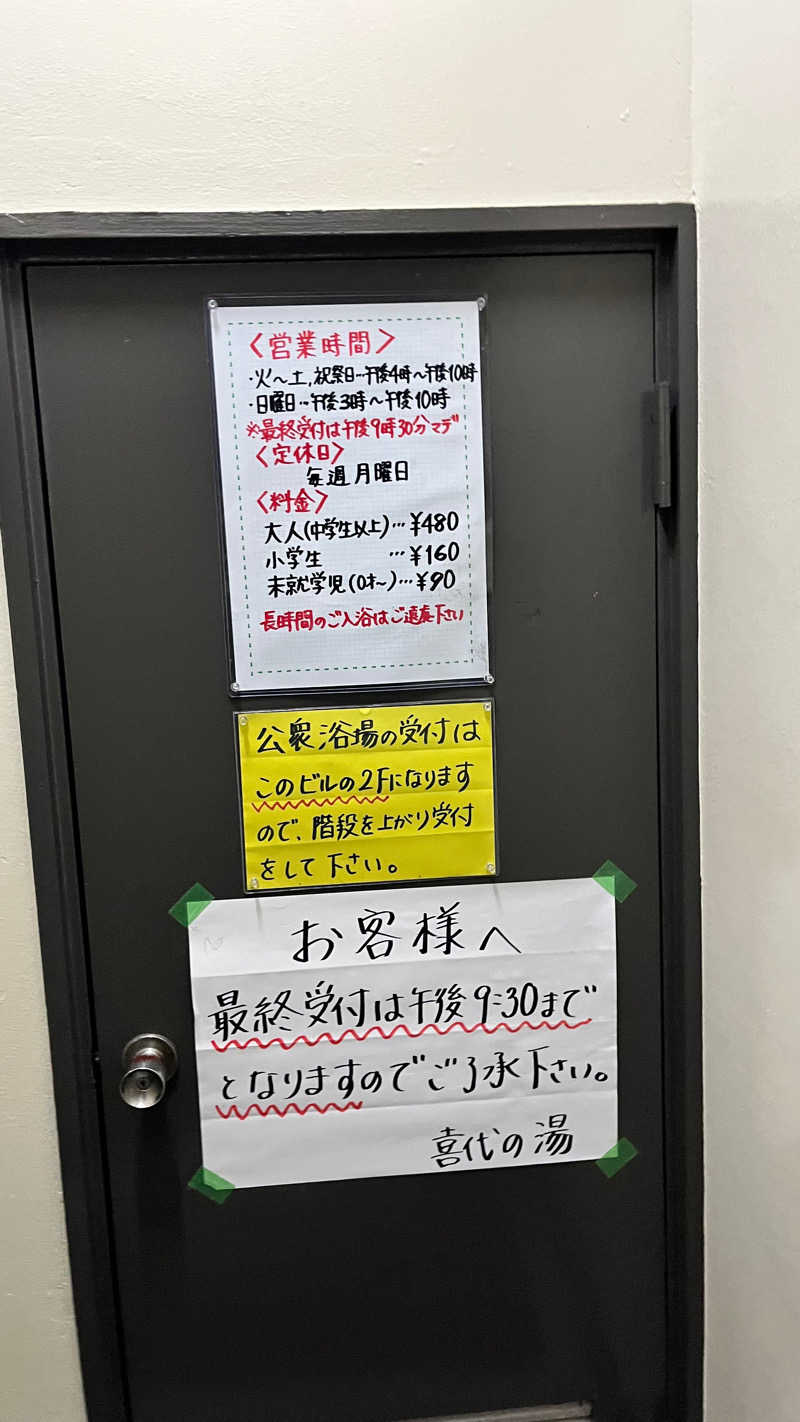 〈営業時間〉
・火〜土,祝祭日…午後4時〜午後10時
・日曜日…午後3時〜午後10時
※最終受付は午後9時30分マデ
〈定休日〉
毎週月曜日
〈料金〉
大人(中学生以上)…¥480
小学生 …¥160
未就学児(0才〜)…¥90
長時間のご入浴はご遠慮下さい
公衆浴場の受付は
このビルの2Fになります
ので、階段を上がり受付
をして下さい。
お客様へ
最終受付は午後9:30まで
となりますのでご了承下さい。
喜代の湯